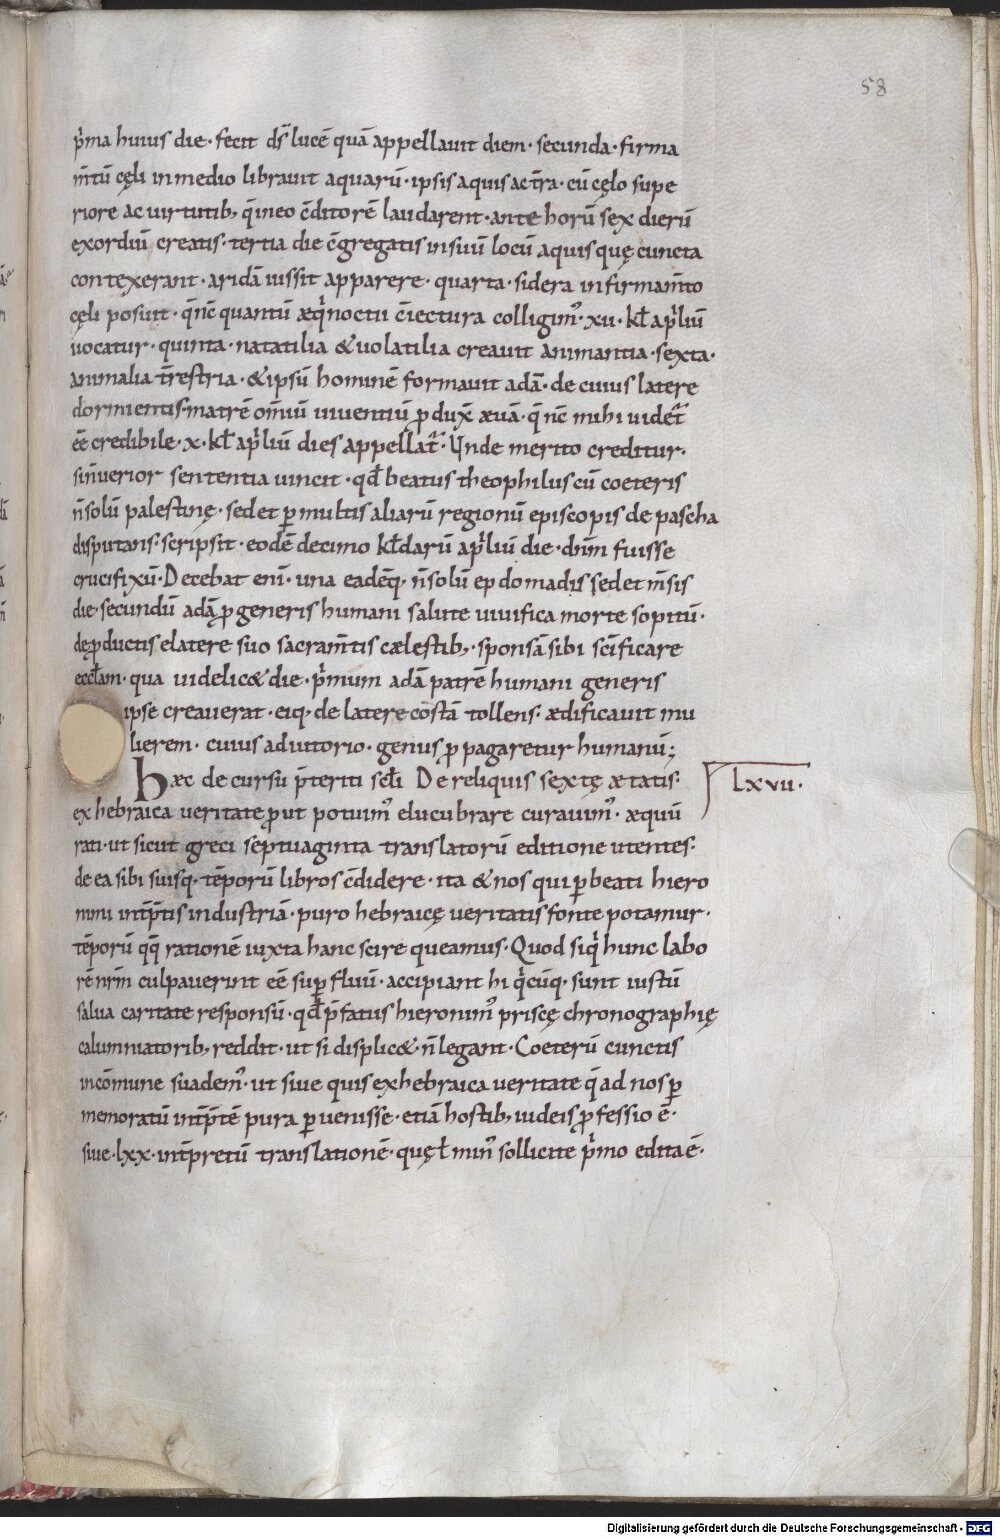 58
p̄ma huius die · fecit d̄s lucē quā appellauit diem · secunda · firma
m̄tū cęli in medio librauit aquarū · ipsis aquis ac t̄ra · cū cęlo supe
riore ac uirtutib; q̄ in eo c̄ditorē laudarent · ante horū sex dierū
exordiū creatis · tertia die c̄gregatis in suū locū aquis quę cuncta
contexerant · aridā iussit apparere · quarta · sidera in firmam̄to
cęli posuit · q̄ nc̄ quantū æq̍noctii c̄iectura colligim᾽ · xii · kł ap̍liū
uocatur · quinta · natatilia & uolatilia creauit animantia · sexta ·
animalia t̄restria · & ipsū hominē formauit adā · de cuius latere
dormientis · matrē om̄iū uiuentiū ꝓdux̄ æuā · q̄ nc̄ mihi uidet᷑
eē credibile · x · kł ap̍liū dies appellat᷑ · Unde merito creditur ·
si n̄ uerior sententia uincit · qđ beatus theophilus cū coeteris
n̄ solū palestinę · sed et ꝑmultis aliarū regionū episcopis de pascha
disputans · scripsit · eodē decimo kłdarū ap̍liū die · dn̄m fuisse
crucifixū · Decebat eni̅ · una eadēq; n̄ solū epdomadis sed et m̄sis
die · secundū adā ꝓ generis humani salute uiuifica morte sopitū ·
de ꝓductis e latere suo sacram̄tis cælestib; sponsā sibi sc̄ificare
eccłam · qua uidelic& die · p̍mum adā patrē humani generis
ipse creauerat · eiq; de latere costā tollens · ædificauit mu
lierem · cuius adiutorio · genus ꝓpagaretur humanū;
Haec de cursu p̄teriti scłi De reliquis sextę ætatis · Lxvii ·
ex hebraica ueritate ꝓut potuim᾽ elucubrare curauim᾽ · æquū
rati · ut sicut greci septuaginta translatorū editione utentes ·
de ea sibi suisq; tēporū libros c̄didere · ita & nos qui ꝑ beati hiero
nimi int̄p̄tis industriā · puro hebraicę ueritatis fonte potamur ·
tēporū qq̄ rationē iuxta hanc scire queamus · Quod si q̍ hunc labo
rē nr̄m culpauerint eē suꝑfluū · accipiant hi q̍cūq; sunt iustū
salua caritate responsū · qđ p̄fatus hieronim᾽ priscę chronographię
calumniatorib; reddit · ut si displic& · n̄ legant · Coeterū cunctis
in cōmune suadem᾽ · ut siue quis ex hebraica ueritate q̄ ad nos ꝑ
memoratū int̄p̄tē pura ꝑuenisse · etiā hostib; iudeis ꝓfessio ē ·
siue · lxx · int̄pretū translationē · quę ł min᾽ sollicite p̍mo edita ē ·
Digitalisierung gefördert durch die Deutsche Forschungsgemeinschaft - DFG